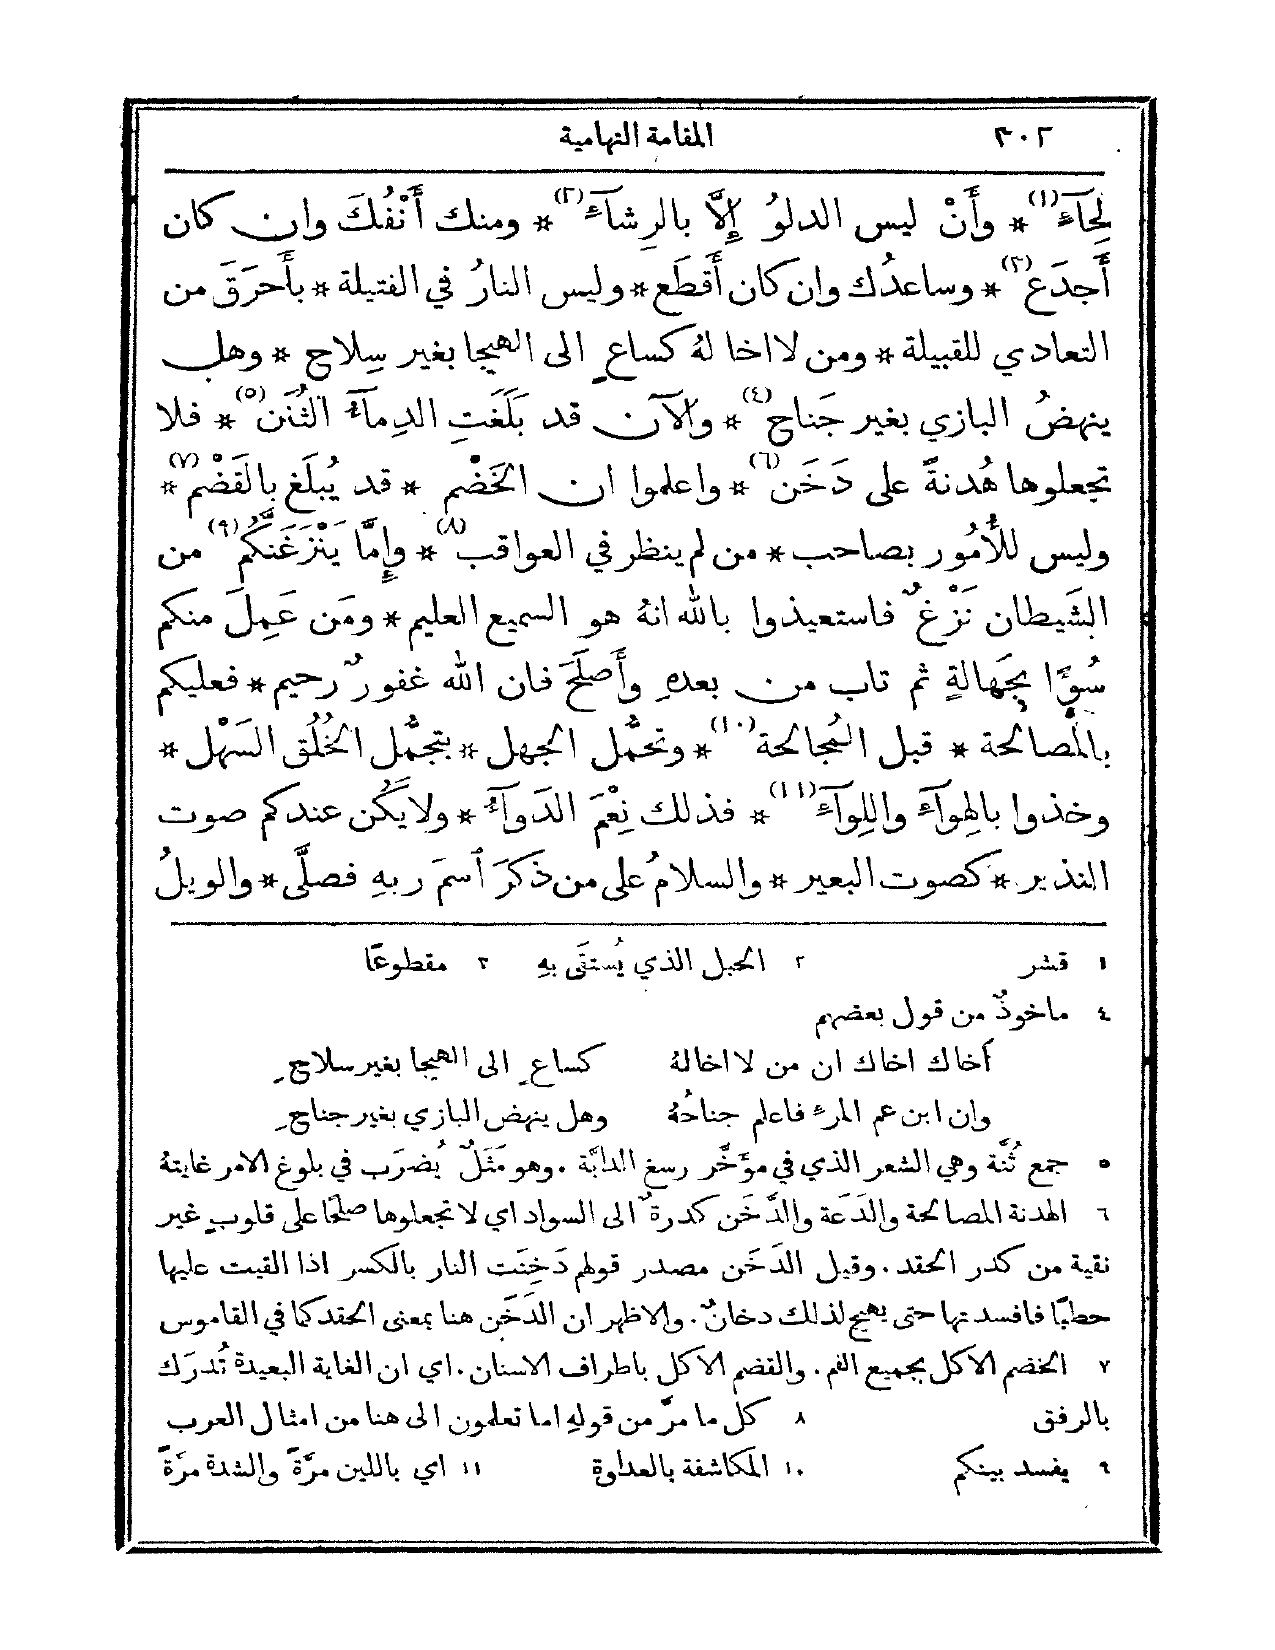 ٣٠٢ المقامة التهامية
لِحَآءٌ(١) * وأَنْ ليس الدلوُ إِلَّا بالرِشآءَ(٢) * ومنك أَنْفُكَ وان كان
أَجدَع(٣) * وساعدُك وان كان أَقطَع * وليس النارُ في الفتيلة * بأَحرَقَ من
التعادي للقبيلة * ومن لا اخا لهُ كساعٍ الى الهيجا بغير سِلاحٍ * وهل
ينهضُ البازي بغير جَناحٍ(٤) * والآن قد بَلَغَتِ الدِمآءُ الثُنَن(٥) * فلا
تجعلوها هُدنةً على دَخَن(٦) * واعلموا ان الخَضْم * قد يُبلَغ بالقَضْم(٧) *
وليس للأُمُور بصاحب * من لم ينظر في العواقب(٨) * وإِمَّا يَنْزَغَنَّكُم(٩) من
الشَيطان نَزْغٌ فاستعيذوا بالله انهُ هو السميع العليم * ومَن عَمِلَ منكم
سُوءًا بجَهالةٍ ثم تاب من بعدهِ وأَصلَحَ فان الله غفورٌ رحيم * فعليكم
بالمصالحة * قبل المُجالحة(١٠) * وتحمُّل الجهل * بتجمُّل الخُلُق السَهْل *
وخذوا بالهوآءَ واللِوآءَ(١١) * فذلك نِعْمَ الدَوآءُ * ولا يكُن عندكم صوت
النذير * كصوت البعير * والسلامُ على من ذكَرَ ٱسمَ ربهِ فصلَّى * والويلُ
١ قشر ٢ الحبل الذي يُستقَى بهِ ٣ مقطوعًا
٤ ماخوذٌ من قول بعضهم
أَخاك اخاك ان من لا اخا لهُ كساعٍ الى الهيجا بغير سلاحٍ
وان ابن عم المرءِ فاعلم جناحُهُ وهل ينهض البازي بغير جناحٍ
٥ جمع ثُنَّة وهي الشعر الذي في مؤَخَّر رسغ الدابَّة. وهو مَثَلٌ يُضرَب في بلوغ الامر غايتهُ
٦ الهدنة المصالحة والدَعَة والدَّخَن كدرةٌ الى السواد اي لا تجعلوها صلحًا على قلوبٍ غير
نقية من كدر الحقد. وقيل الدَخَن مصدر قولهم دَخِنَت النار بالكسر اذا القيت عليها
حطبًا فافسدتها حتى يهيج لذلك دخانٌ. والاظهر ان الدَخَن هنا بمعنى الحقد كما في القاموس
٧ الخضم الاكل بجميع الفم. والقضم الاكل باطراف الاسنان. اي ان الغاية البعيدة تُدرَك
بالرفق ٨ كل ما مرَّ من قولهِ اما تعلمون الى هنا من امثال العرب
٩ يفسد بينكم ١٠ المكاشفة بالعداوة ١١ اي باللين مرَّةً والشدة مرَّةً